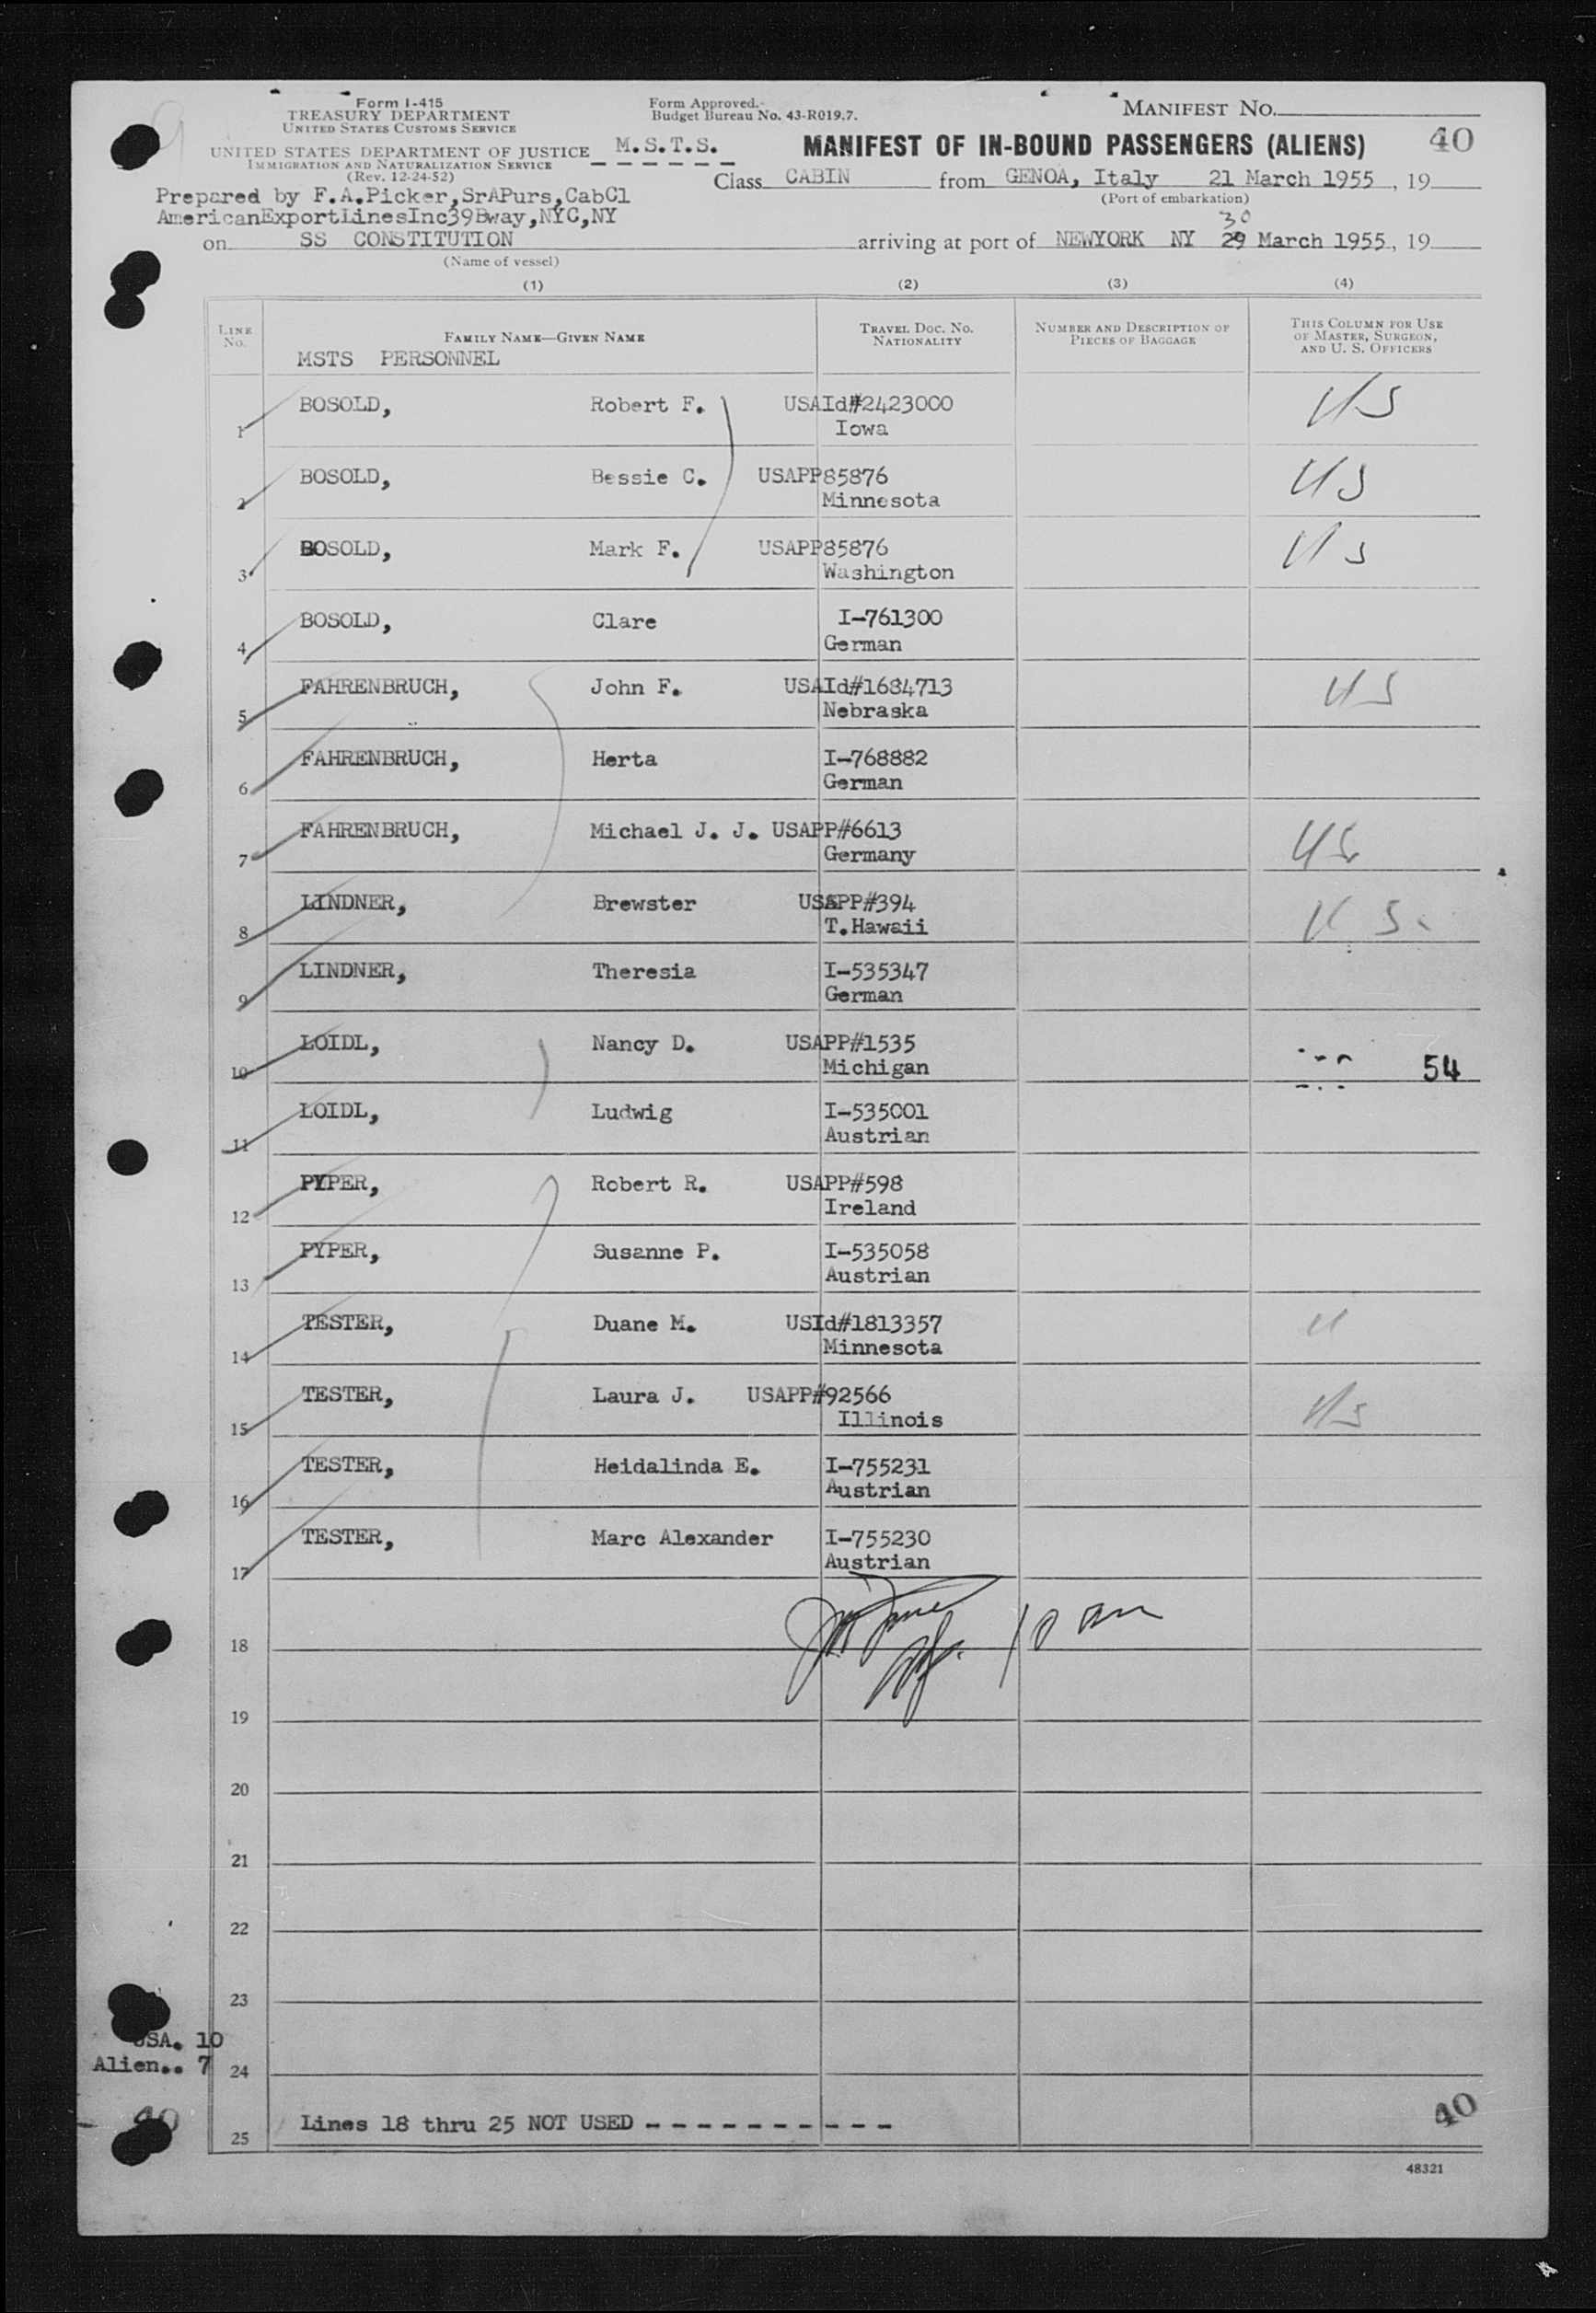 Form I-415
TREASURY DEPARTMENT
UNITED STATES CUSTOMS SERVICE
UNITED STATES DEPARTMENT OF JUSTICE
IMMIGRATION AND NATURALIZATION SERVICE
(Rev. 12-24-52)
Form Approved.
Budget Bureau No. 43-R019.7.
M.S.T.S.
MANIFEST NO.
MANIFEST OF IN-BOUND PASSENGERS (ALIENS) 40
Class CABIN from GENOA, Italy 21 March 1955, 19
(Port of embarkation)
Prepared by F.A.Picker,SrAPurs,CabCl
AmericanExportLinesInc39Bway,NYC,NY
30
on SS CONSTITUTION arriving at port of NEWYORK NY 29 March 1955, 19
(Name of vessel)
(1) (2) (3) (4)
LINE NO. FAMILY NAME—GIVEN NAME TRAVEL DOC. NO. NATIONALITY NUMBER AND DESCRIPTION OF PIECES OF BAGGAGE THIS COLUMN FOR USE OF MASTER, SURGEON, AND U. S. OFFICERS
MSTS PERSONNEL
1 BOSOLD, Robert F. USAId#2423000 US
Iowa
2 BOSOLD, Bessie C. USAPP85876 US
Minnesota
3 BOSOLD, Mark F. USAPP85876 US
Washington
4 BOSOLD, Clare I-761300
German
5 FAHRENBRUCH, John F. USAId#1684713 US
Nebraska
6 FAHRENBRUCH, Herta I-768882
German
7 FAHRENBRUCH, Michael J. J. USAPP#6613 US
Germany
8 LINDNER, Brewster USAPP#394 U S.
T.Hawaii
9 LINDNER, Theresia I-535347
German
10 LOIDL, Nancy D. USAPP#1535 54
Michigan
11 LOIDL, Ludwig I-535001
Austrian
12 PYPER, Robert R. USAPP#598
Ireland
13 PYPER, Susanne P. I-535058
Austrian
14 TESTER, Duane M. USId#1813357 U
Minnesota
15 TESTER, Laura J. USAPP#92566 US
Illinois
16 TESTER, Heidalinda E. I-755231
Austrian
17 TESTER, Marc Alexander I-755230
Austrian
10 am
18
19
20
21
22
23
USA. 10
Alien.. 7
24
40
25 Lines 18 thru 25 NOT USED - - - - - - - - - -
40
48321